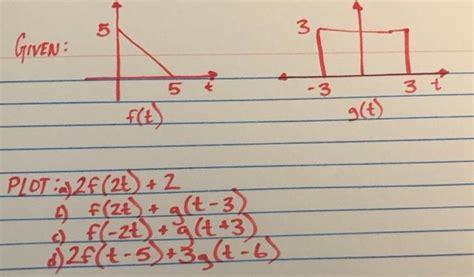 GIVEN:
5
5 t
f(t)
3
-3 3 t
g(t)
PLOT: a) 2f(2t) + 2
b) f(2t) + g(t-3)
c) f(-2t) + g(t+3)
d) 2f(t-5) + 3g(t-6)